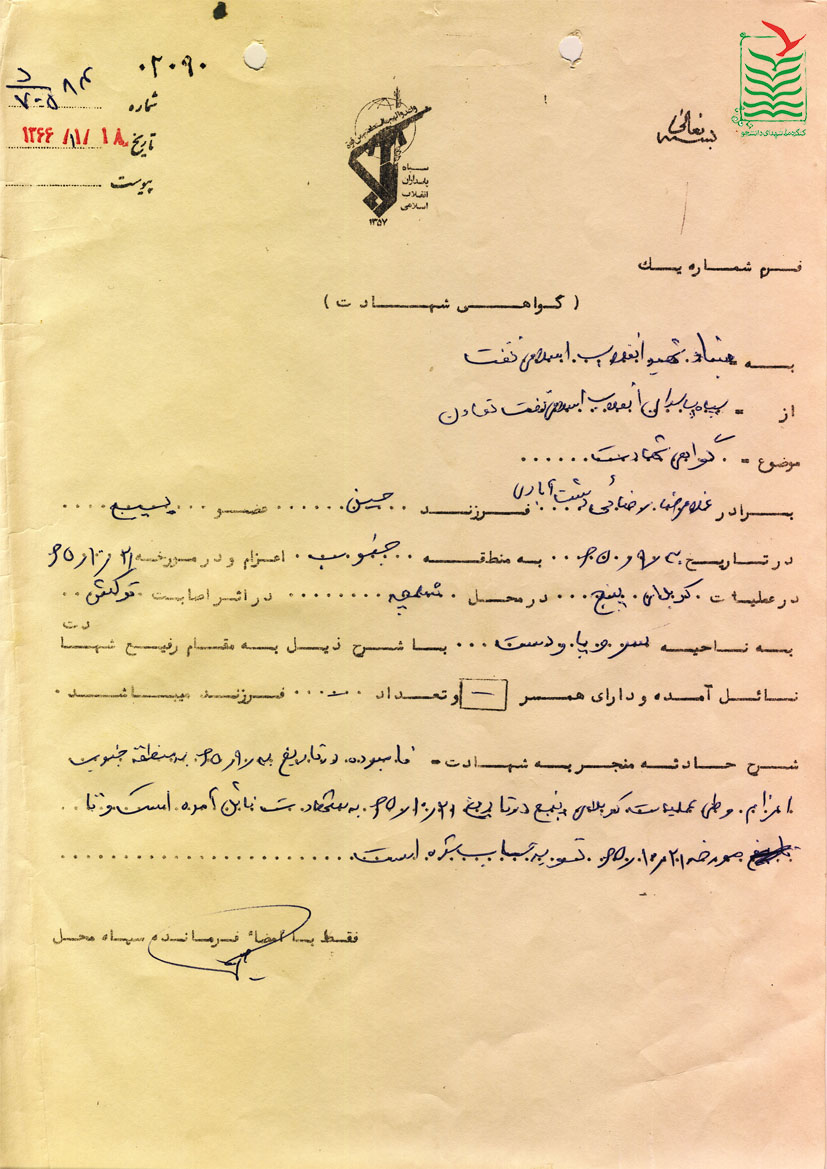 کنگره ملی شهدای دانشجو
بسمه تعالی
۰۲۰۹۰
شماره
تاریخ ۱۳۶۶/۱/۱۸
پیوست
سپاه
پاسداران
انقلاب
اسلامی
۱۳۵۷
فرم شماره یک
(گواهی شهادت)
به = بنیاد شهید انقلاب اسلامی نفت
از = سپاه پاسداران انقلاب اسلامی نفت تعاون
موضوع = گواهی شهادت
برادر غلامرضا رضائی دشت آبادی فرزند حسین عضو بسیج
در تاریخ به منطقه جنوب اعزام و در مورخه ۶۵/۱۰/۲۱
در عملیات کربلای پنج در محل شلمچه در اثر اصابت ترکش
به ناحیه سر و پا و دست با شرح ذیل به مقام رفیع شهادت
نائل آمده و دارای همسر - و تعداد - فرزند میباشد.
شرح حادثه منجر به شهادت = نامبرده در تاریخ به منطقه جنوب
اعزام و طی عملیات کربلای پنج در تاریخ ۶۵/۱۰/۲۱ به شهادت نائل آمده است و تا
مورخه ۶۵/۱۰/۲۱ تسویه حساب شده است
فقط با امضاء فرمانده سپاه محل